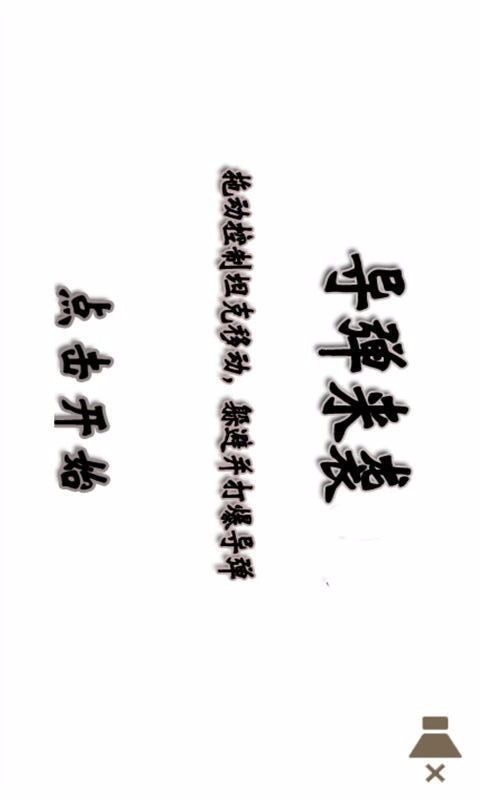 导弹来袭
拖动控制坦克移动，躲避并打爆导弹
点击开始